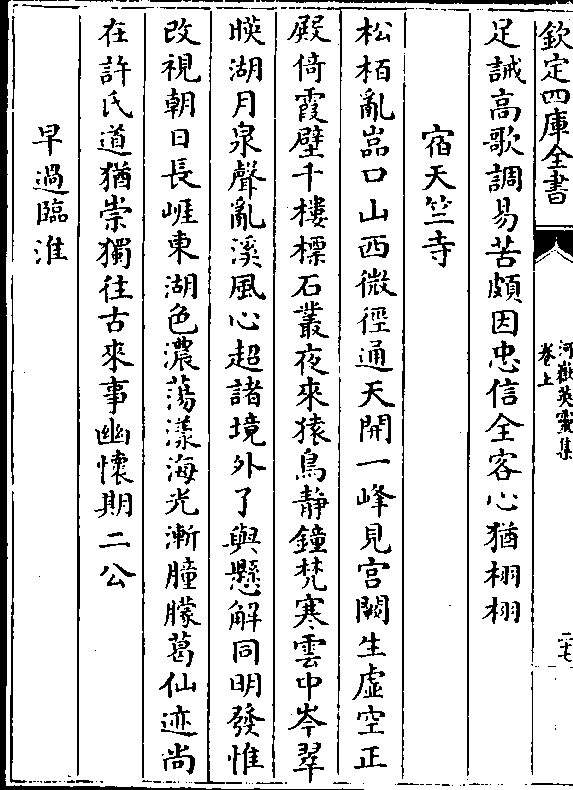 欽定四庫全書
河嶽英靈集
卷上
二七
足誡高歌調易苦頗因忠信全客心猶栩栩
宿天竺寺
松栢亂嵓口山西微徑通天開一峰見宮闕生虛空正
殿倚霞壁千樓標石叢夜來猿鳥靜鐘梵寒雲中岑翠
暎湖月泉聲亂溪風心超諸境外了與懸解同明發惟
改視朝日長崕東湖色濃蕩漾海光漸朣朦葛仙迹尚
在許氏道猶崇獨往古來事幽懷期二公
早過臨淮